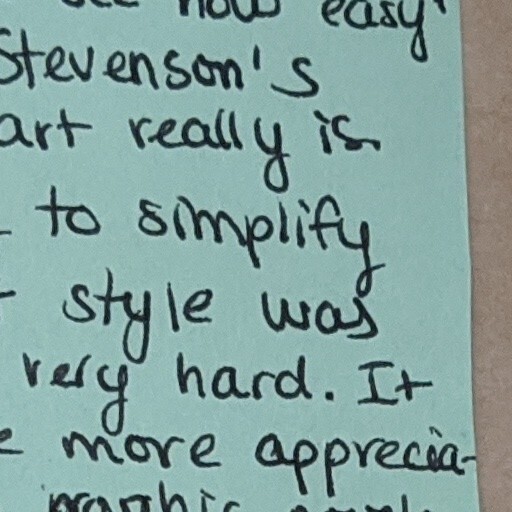 how easy
Stevenson's
art really is.
to simplify
style was
very hard. It
more apprecia-